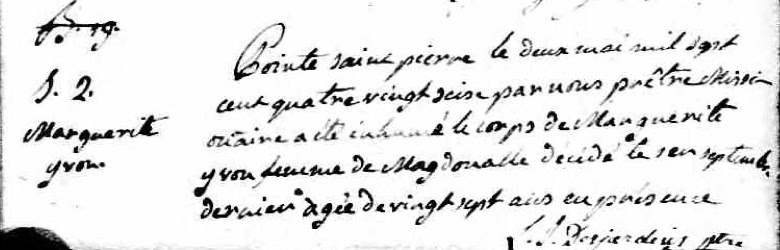 B. 19.
S. 2.
Marguerite
yvon
Pointe saint pierre le deux mai mil sept
cent quatre vingt seise par nous prêtre Missi
onaire a été inhumé le corps de Marguerite
yvon femme de Magdonalle décédé le sen septembre
dernier agée de vingt sept ans en présence
Desjardins ptre